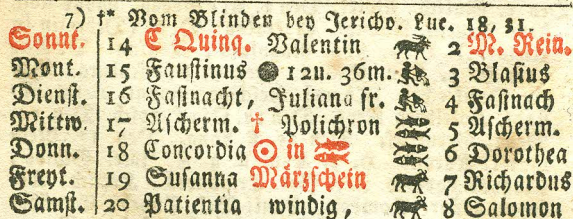 7) †* Vom Blinden bey Jericho. Luc. 18, 31.
Sonnt. 14 C Quinq. Valentin 2 M. Rein.
Mont. 15 Faustinus ● 12u. 36m. 3 Blasius
Dienst. 16 Fasinacht, Juliana fr. 4 Fasinach
Mittw. 17 Ascherm. † Polichron 5 Ascherm.
Donn. 18 Concordia ☉ in ♓ 6 Dorothea
Freyt. 19 Susanna Märzschein 7 Richardus
Samst. 20 Patientia windig, 8 Salomon